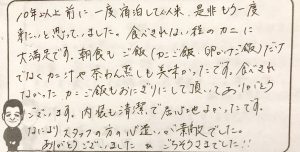 10年以上前に一度宿泊して以来、是非もう一度
来たいと思っていました。食べきれない程のカニに
大満足です。朝食もご飯(カニご飯・卵かけご飯)だけ
でなくカニ汁や茶わん蒸しも美味かったです。食べきれ
なかったカニご飯もおにぎりにして頂いてありがとう
ございます。内湯も清潔で居心地よかったです。
なによりスタッフの方の心遣いが素敵でした。
ありがとうございました ごちそうさまでした!!